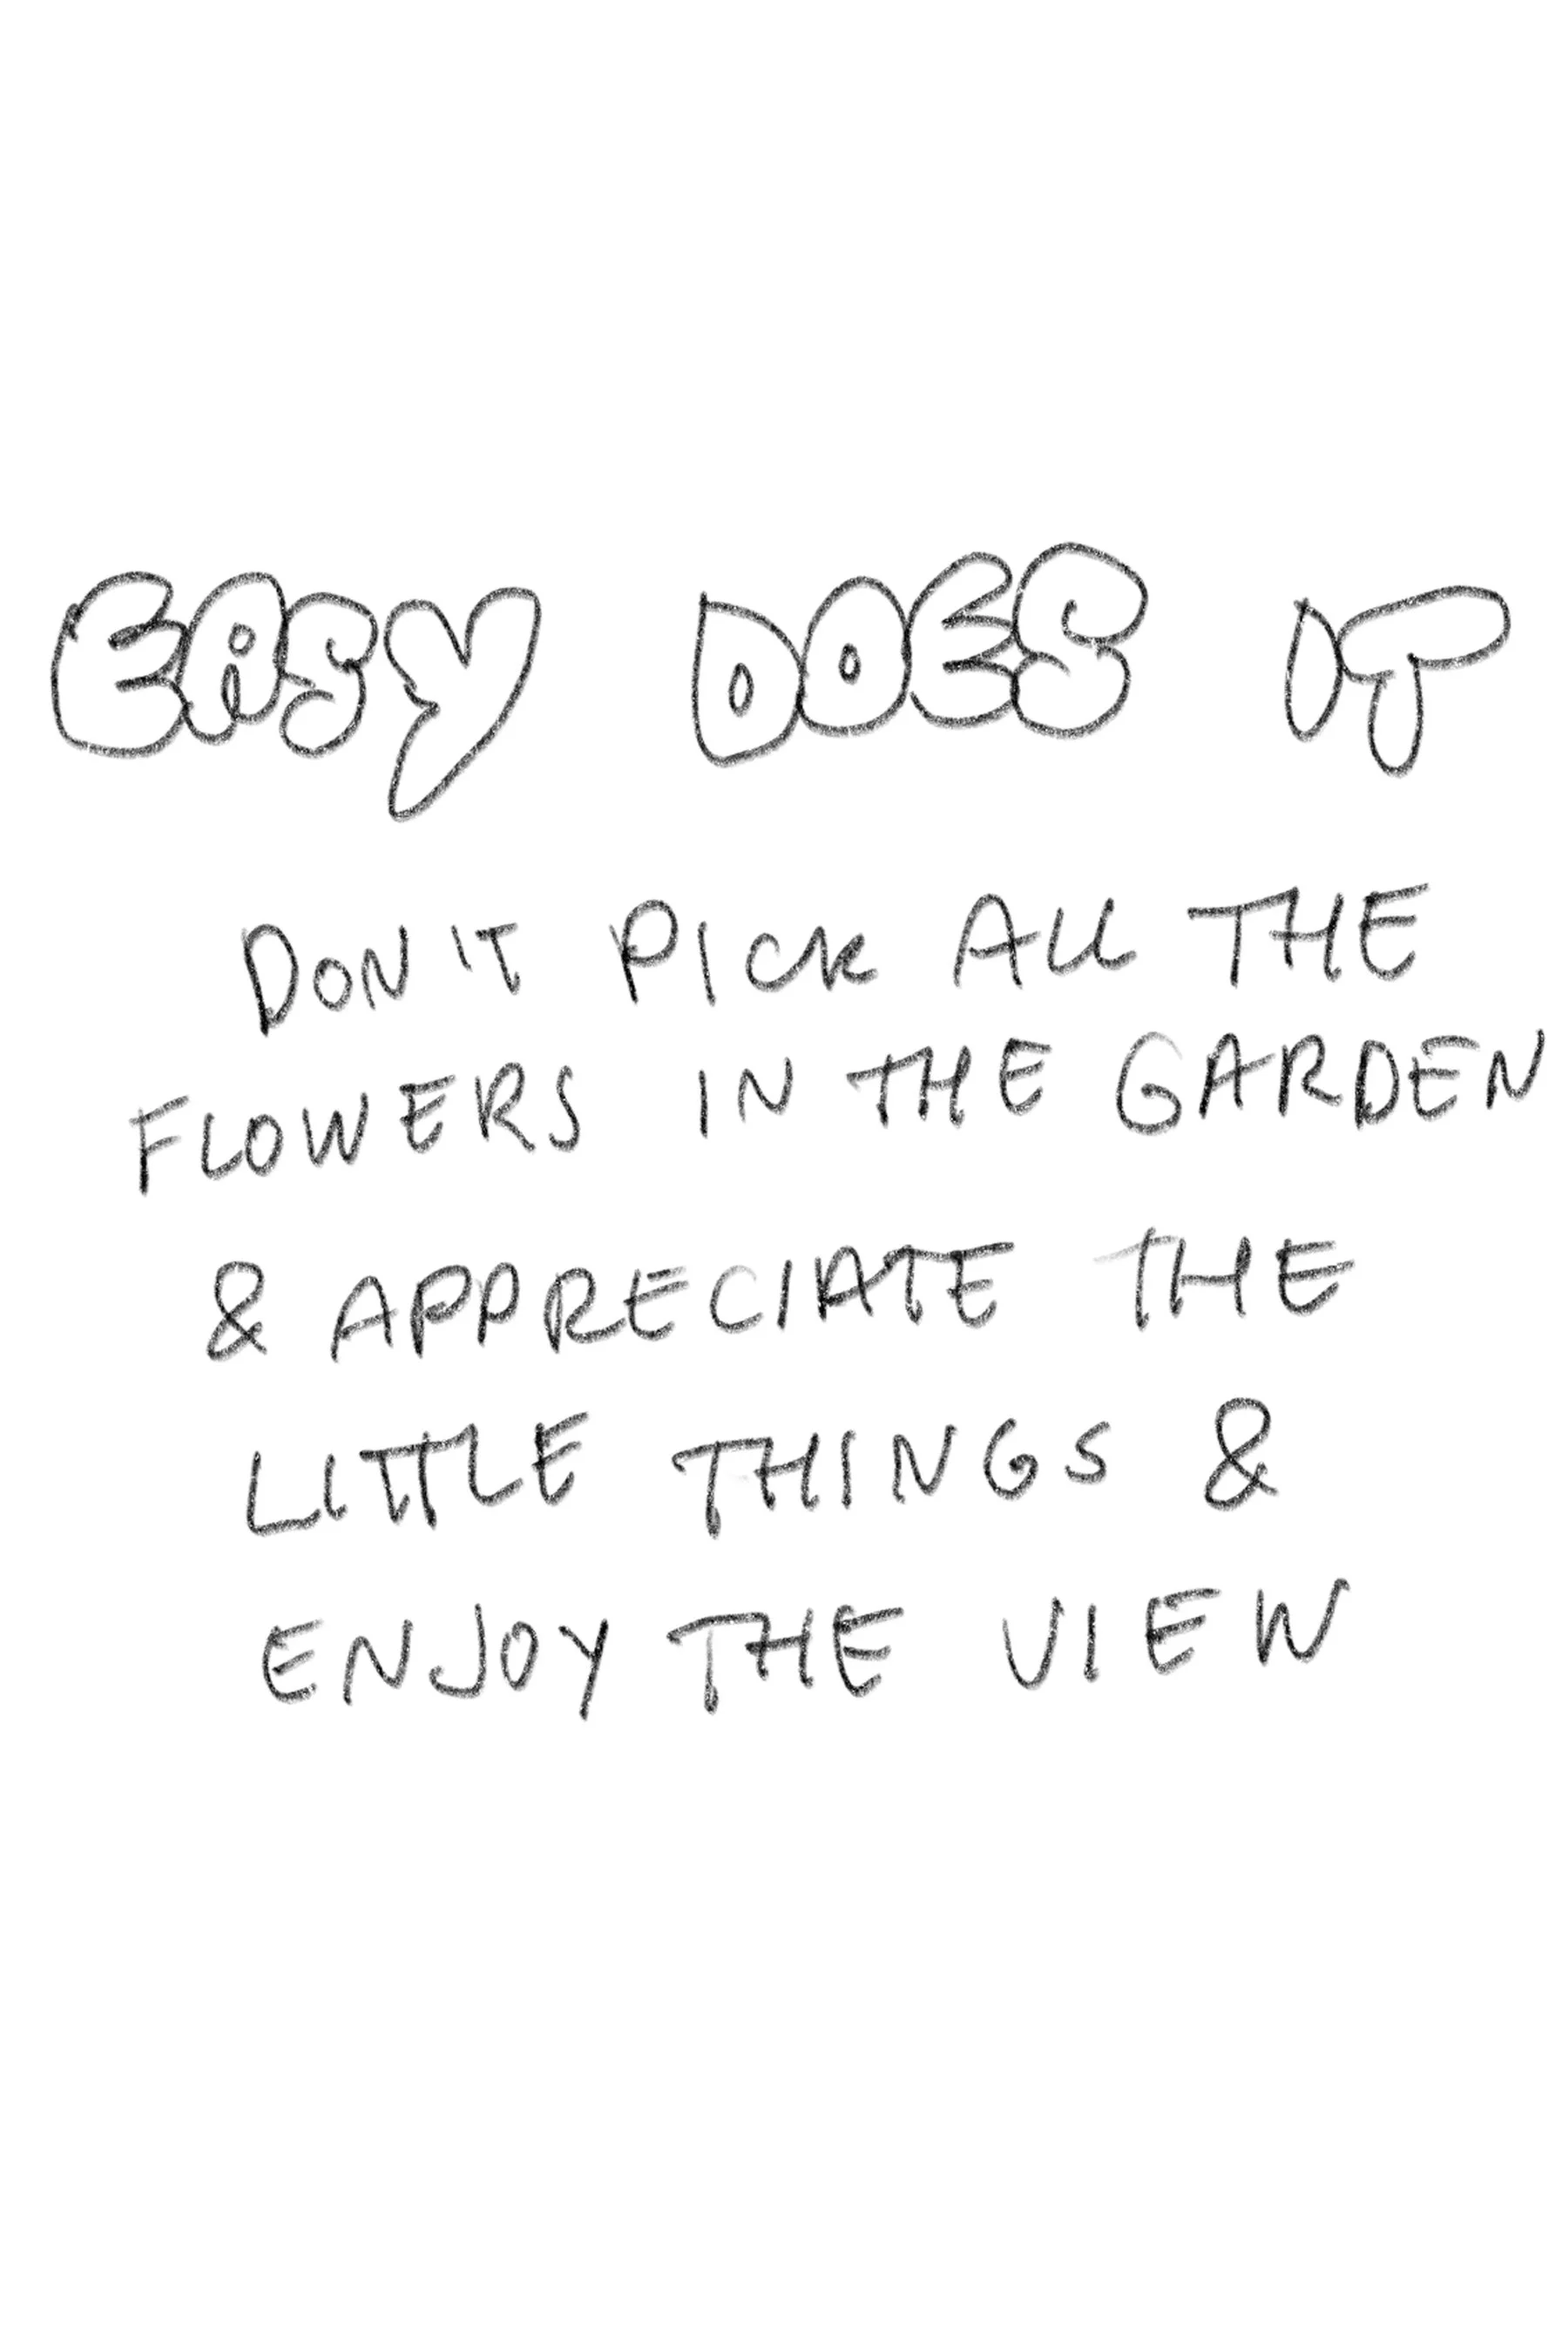 EASY DOES IT
DON'T PICK ALL THE
FLOWERS IN THE GARDEN
& APPRECIATE THE
LITTLE THINGS &
ENJOY THE VIEW